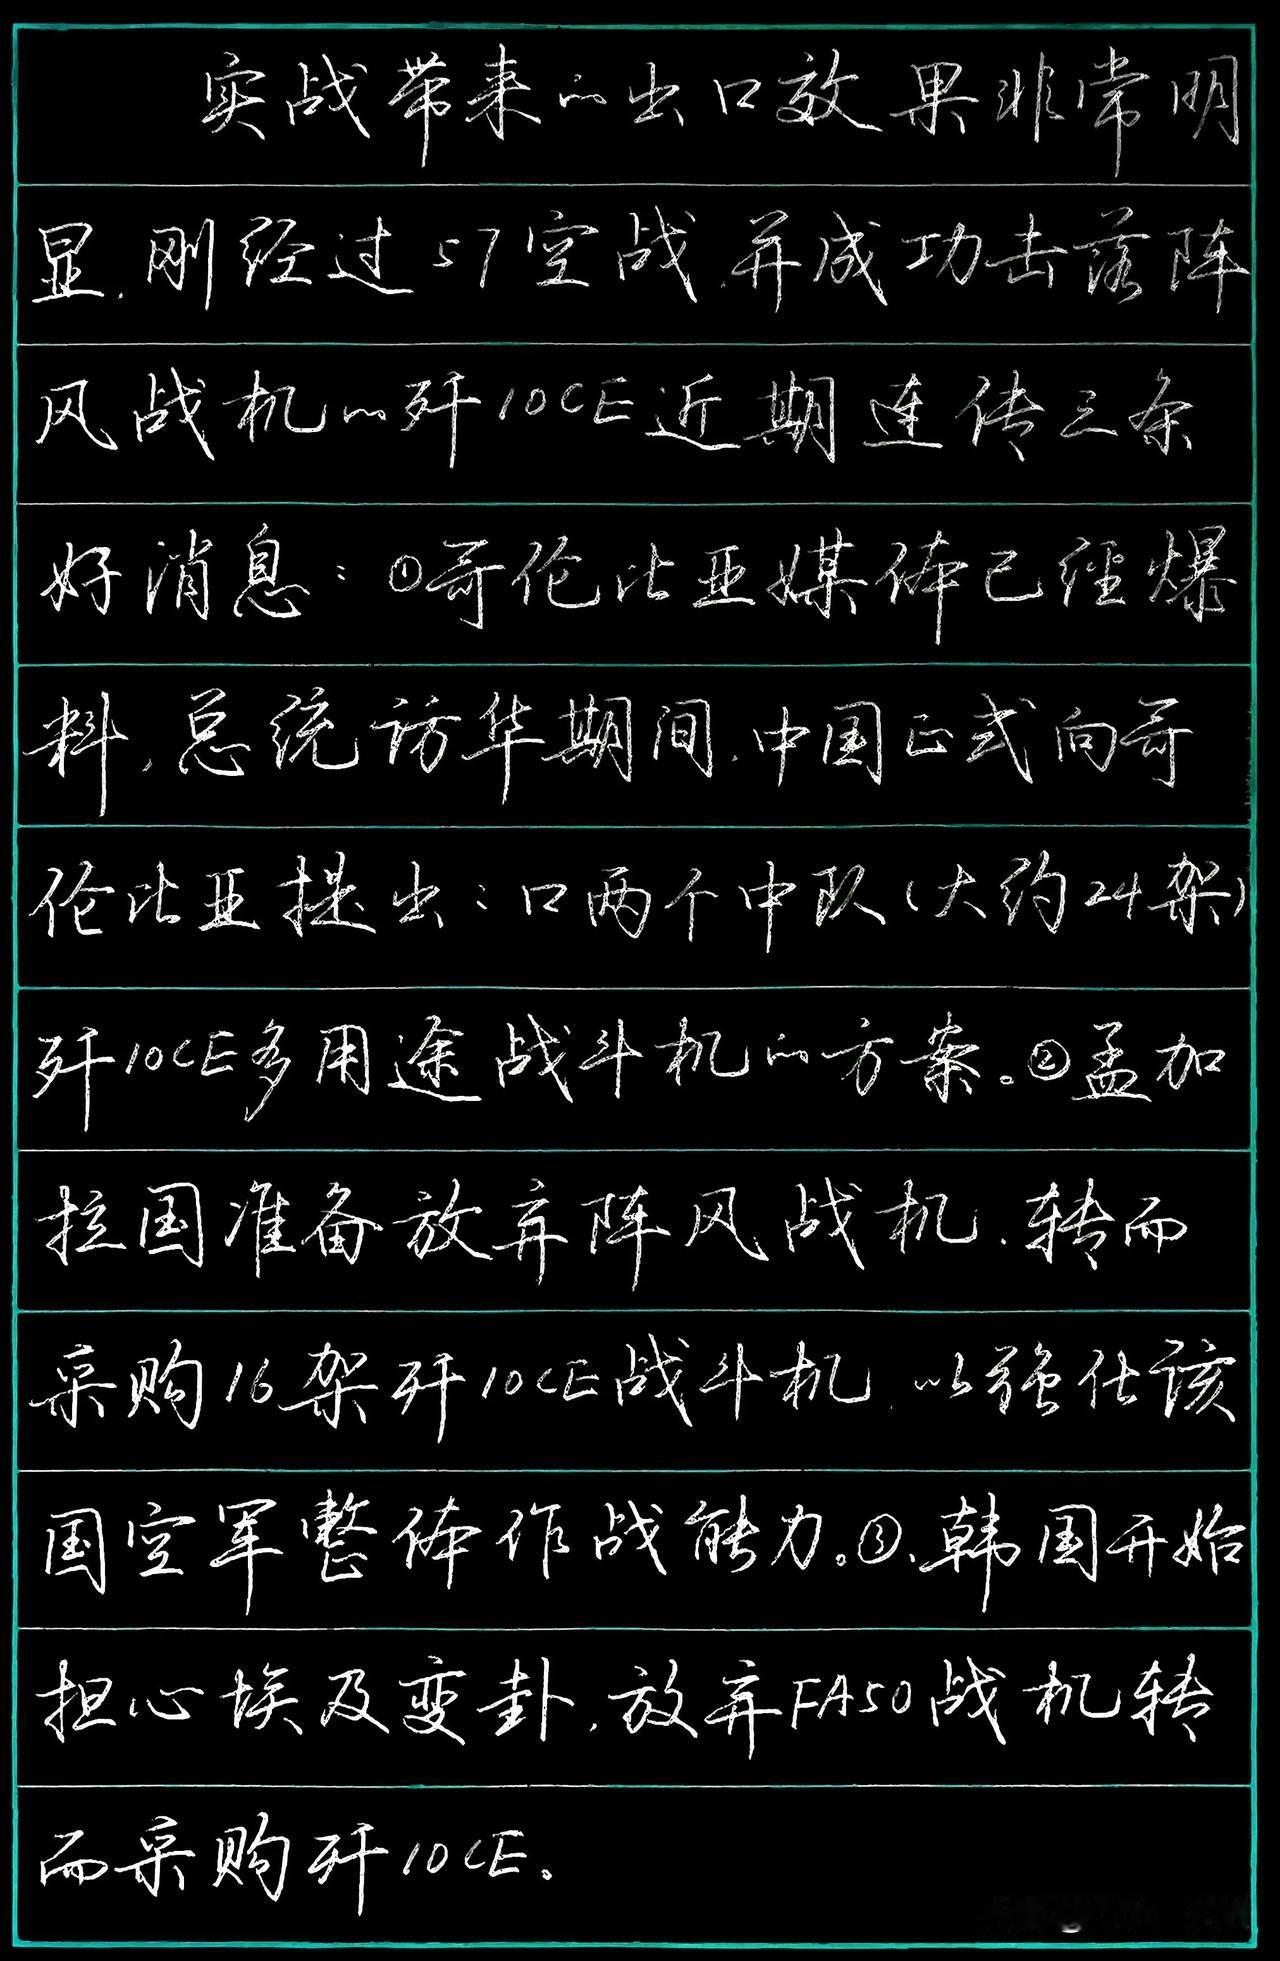 实战带来的出口效果非常明
显,刚经过57空战,并成功击落阵
风战机的歼10CE近期连传三条
好消息:①哥伦比亚媒体已经爆
料,总统访华期间,中国正式向哥
伦比亚提出:口两个中队(大约24架)
歼10CE多用途战斗机的方案。②孟加
拉国准备放弃阵风战机,转而
采购16架歼10CE战斗机,以强化该
国空军整体作战能力。③、韩国开始
担心埃及变卦,放弃FA50战机转
而采购歼10CE。